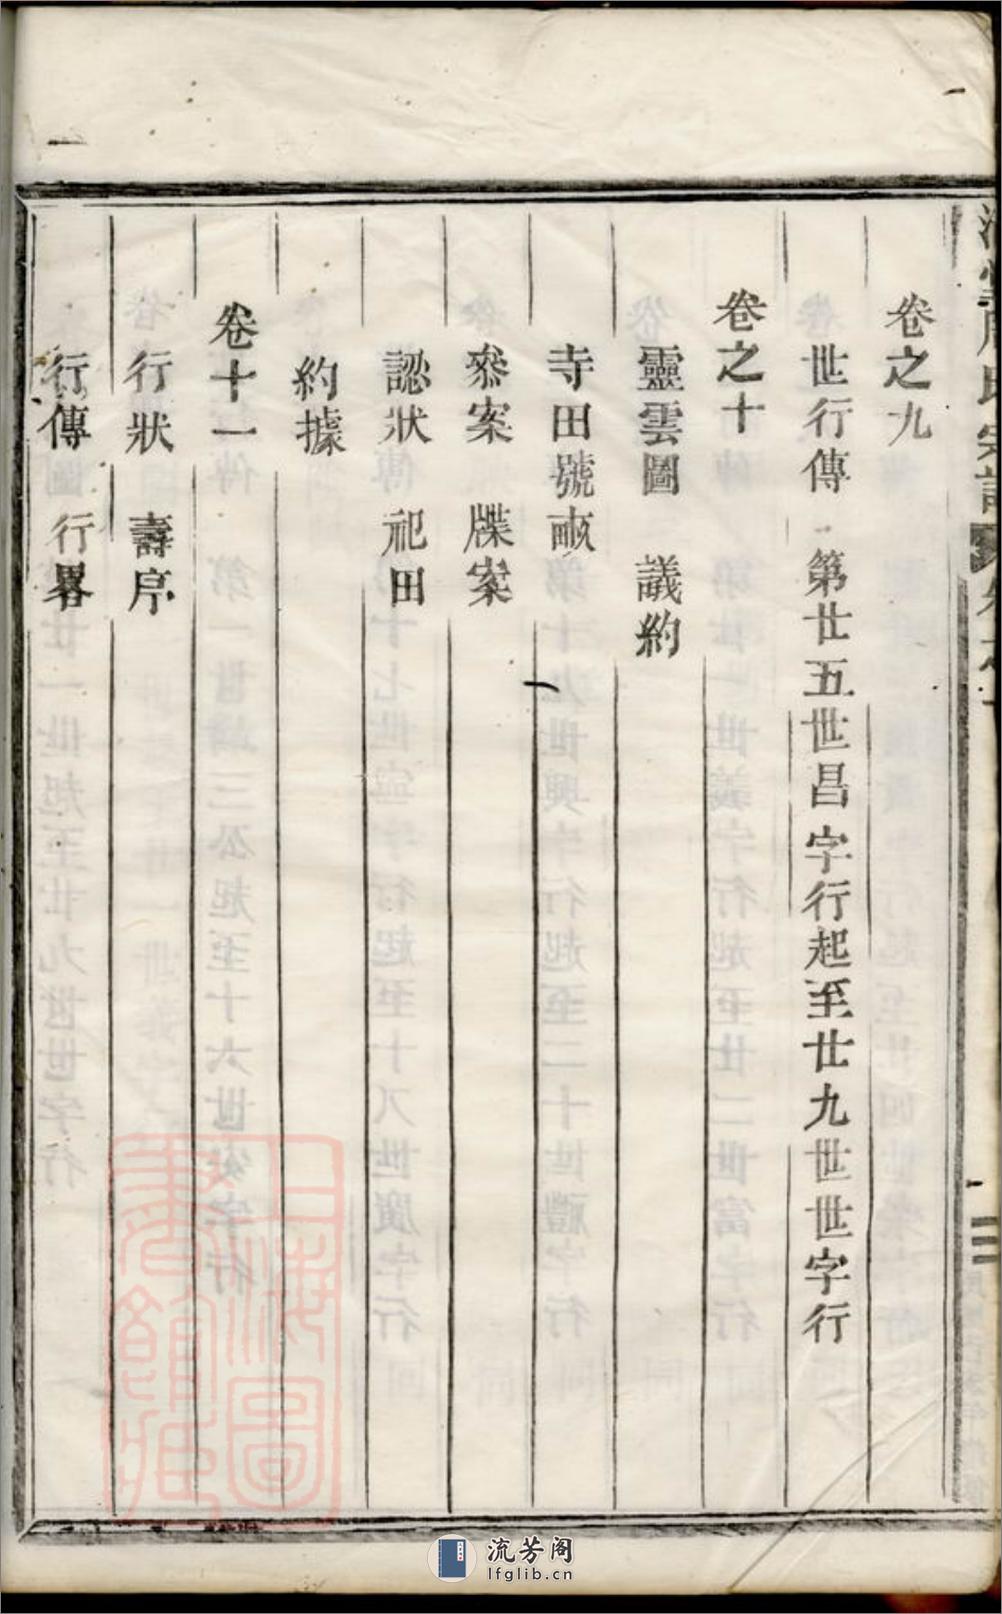 卷之九
世行傳 第廿五世昌字行起至廿九世世字行
卷之十
靈雲圖 議約
寺田號畝
叅案 牒案
認狀 祀田
約據
卷十一
行狀 壽序
行傳 行畧
流芳阁
lfglib.cn